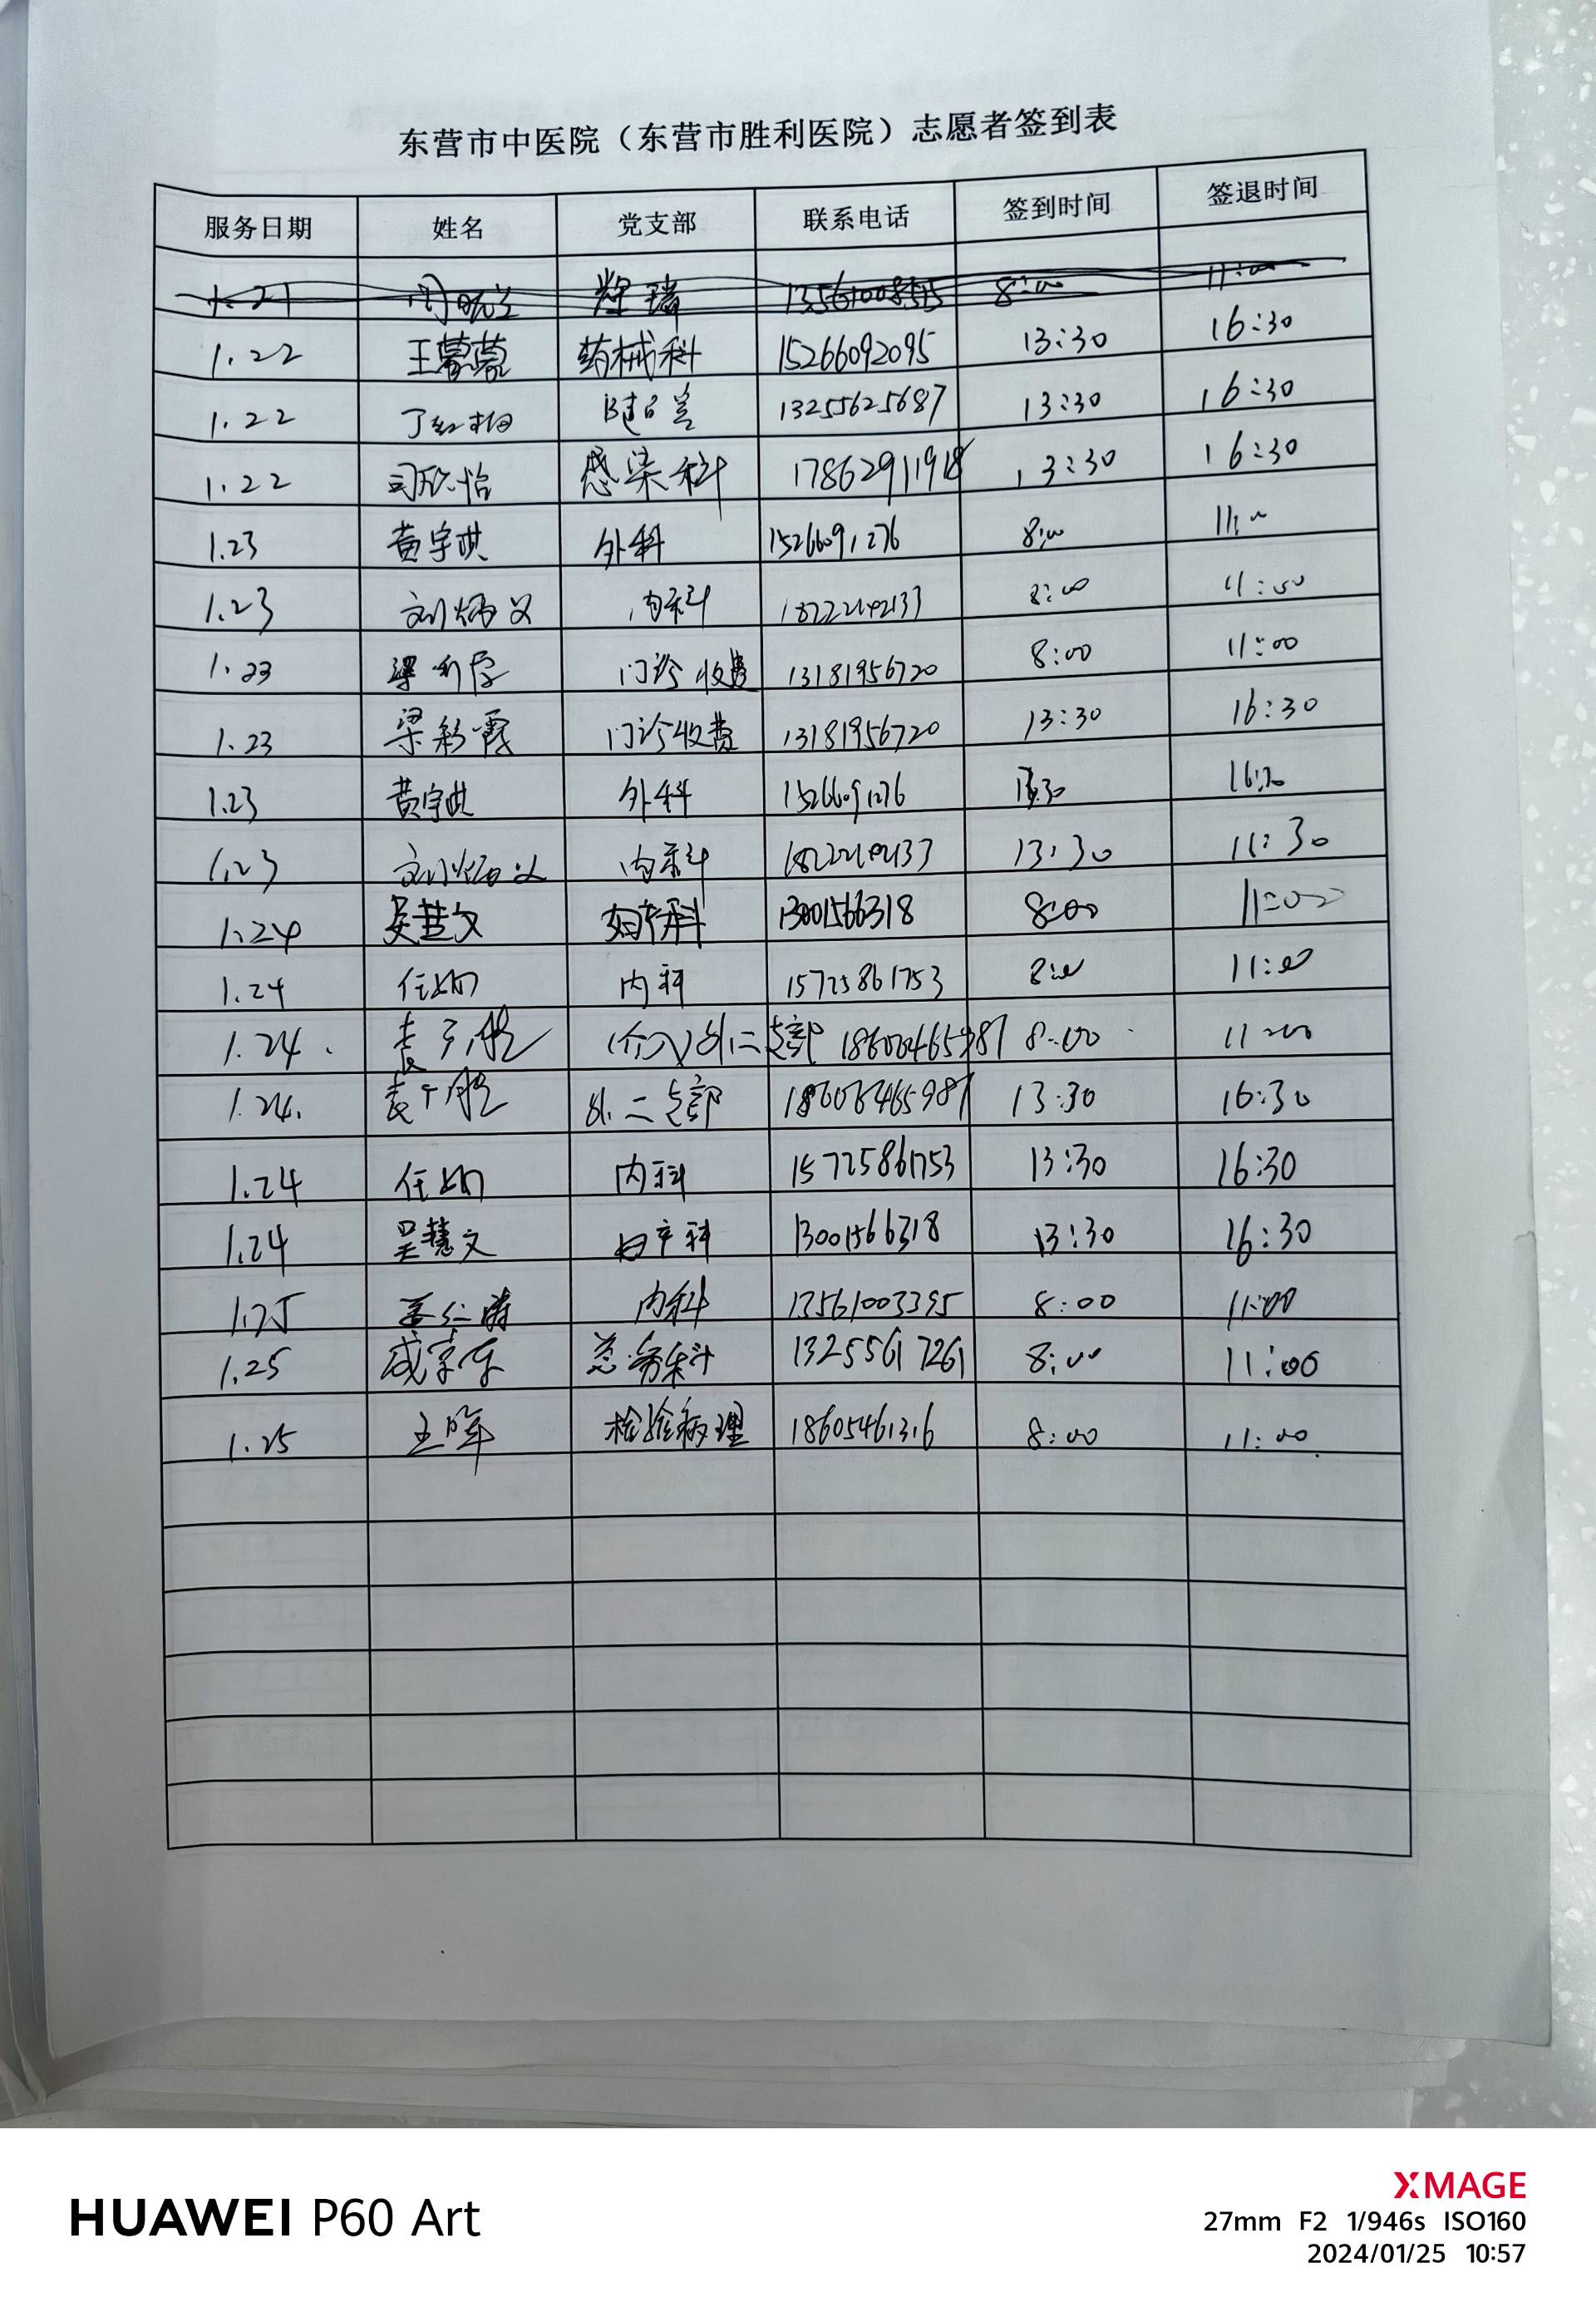 东营市中医院（东营市胜利医院）志愿者签到表
服务日期 姓名 党支部 联系电话 签到时间 签退时间
1.21 8:00 11:00
1.22 王蒙蒙 药械科 15266092095 13:30 16:30
1.22 丁红梅 13255625687 13:30 16:30
1.22 司欣怡 感染科 17862911918 13:30 16:30
1.23 黄宇琪 外科 15266091276 8:00 11:00
1.23 刘炳义 内科 8:00 11:00
1.23 门诊收费 13181956720 8:00 11:00
1.23 梁彩霞 门诊收费 13181956720 13:30 16:30
1.23 黄宇琪 外科 15266091276 13:30 16:30
1.23 刘炳义 内科 13:30 11:30
1.24 吴慧文 妇产科 13001566318 8:00 11:00
1.24 任娟 内科 15725861753 8:00 11:00
1.24. (介入)外二支部 8:00 11:00
1.24. 外二支部 13:30 16:30
1.24 任娟 内科 15725861753 13:30 16:30
1.24 吴慧文 妇产科 13001566318 13:30 16:30
1.25 内科 13561003395 8:00 11:00
1.25 总务科 13255617261 8:00 11:00
1.25 王晖 检验病理 18605461316 8:00 11:00
HUAWEI P60 Art
XMAGE
27mm F2 1/946s ISO160
2024/01/25 10:57